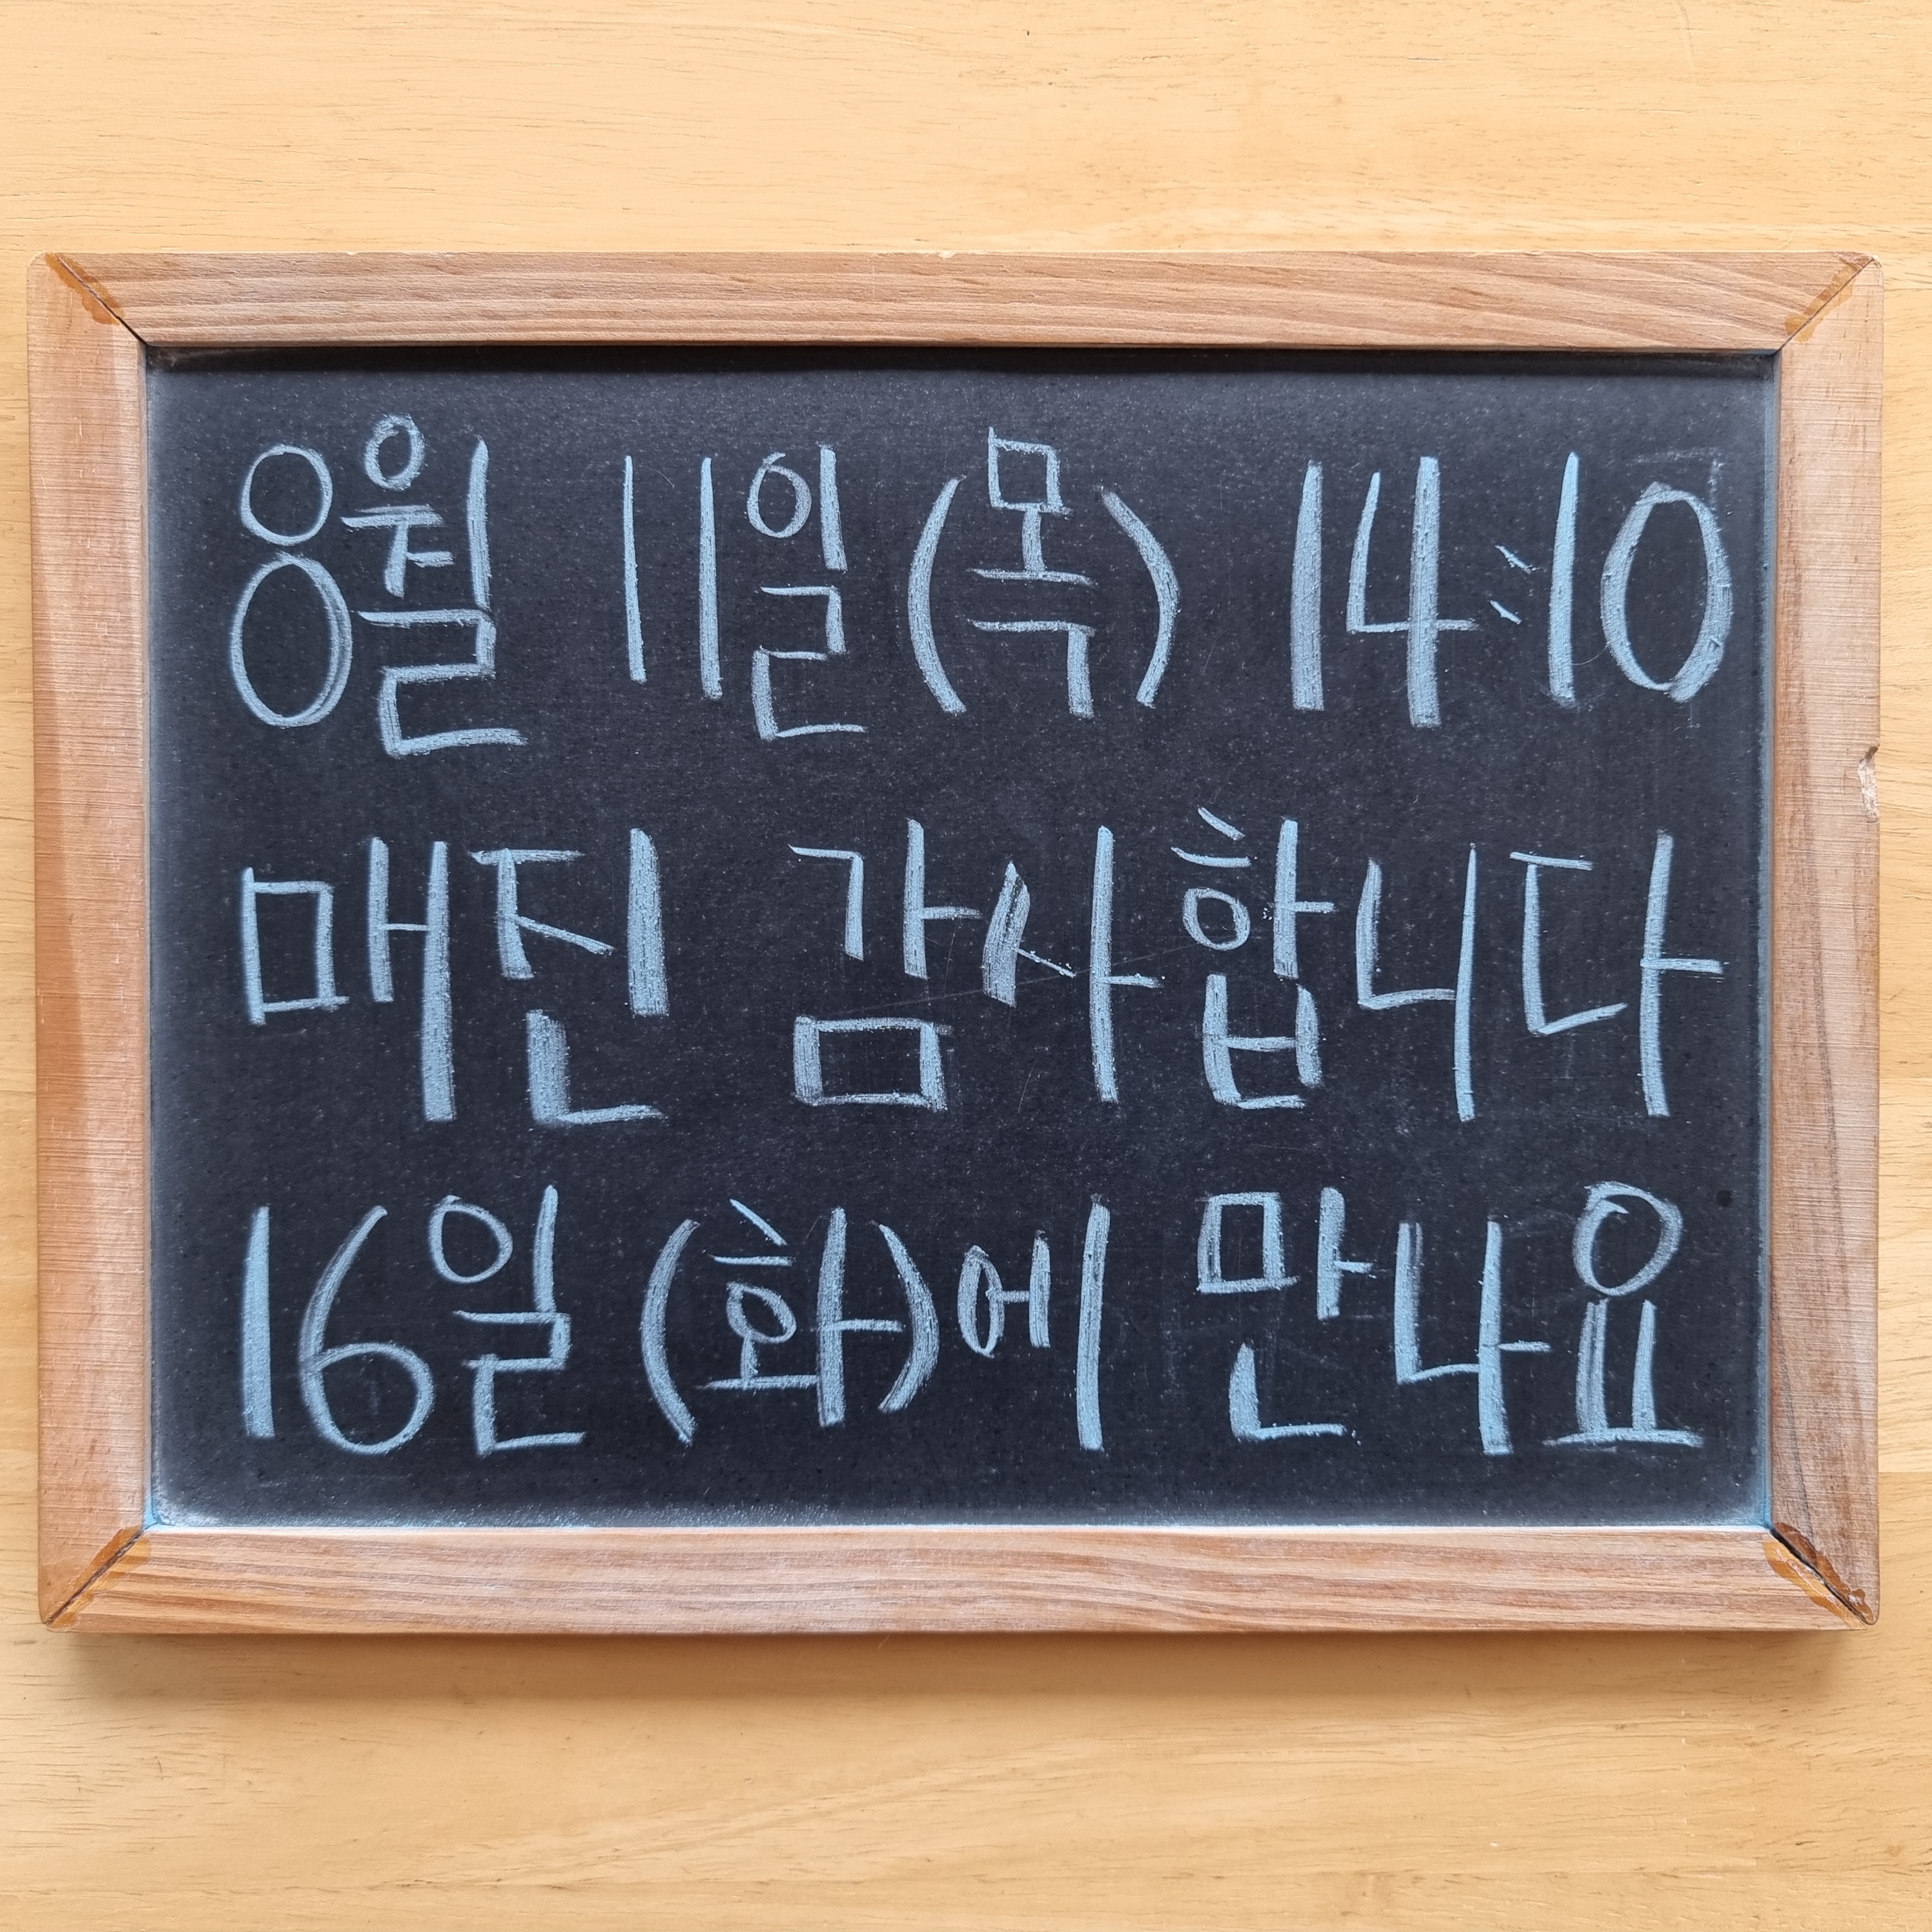 8월 11일(목) 14:10
매진 감사합니다
16일(화)에 만나요